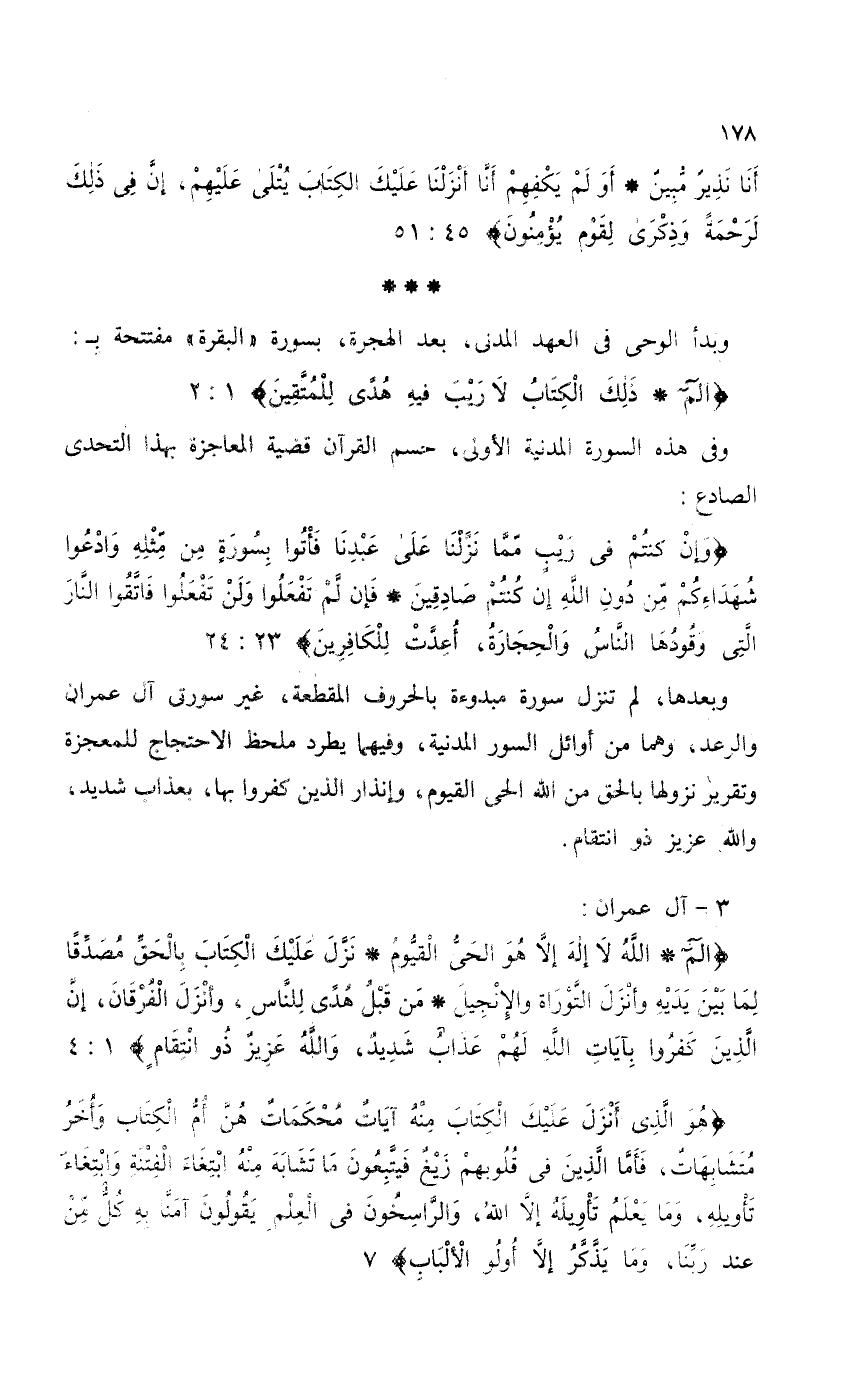 ١٧٨
أَنَا نَذِيرٌ مُّبِينٌ * أَوَ لَمْ يَكْفِهِمْ أَنَّا أَنْزَلْنَا عَلَيْكَ الكِتَابَ يُتْلَىٰ عَلَيْهِمْ، إنَّ فِى ذَٰلِكَ
لَرَحْمَةً وَذِكْرَىٰ لِقَوْمٍ يُؤْمِنُونَ﴾ ٤٥ : ٥١
* * *
وبدأ الوحى فى العهد المدنى، بعد الهجرة، بسورة «البقرة» مفتتحة بِـ :
﴿الـمّ * ذَٰلِكَ الْكِتَابُ لَا رَيْبَ فيهِ هُدًى لِلْمُتَّقِينَ﴾ ١ : ٢
وفى هذه السورة المدنية الأولى، حسم القرآن قضية المعاجزة بهذا التحدى
الصادع :
﴿وَإنْ كنتُمْ فى رَيْبٍ مّمَّا نَزَّلْنَا عَلَىٰ عَبْدِنَا فَأْتُوا بِسُورَةٍ مِن مِّثْلِهِ وَادْعُوا
شُهَدَاءِكُمْ مِّن دُونِ اللَّهِ إن كُنتُمْ صَادِقِينَ * فَإن لَّمْ تَفْعَلُوا وَلَنْ تَفْعَلُوا فَاتَّقُوا النَّارَ
الَّتِى وَقُودُهَا النَّاسُ وَالْحِجَارَةُ، أُعِدَّتْ لِلْكَافِرِينَ﴾ ٢٣ : ٢٤
وبعدها، لم تنزل سورة مبدوءة بالحروف المقطعة، غير سورتى آل عمران
والرعد، وهما من أوائل السور المدنية، وفيهما يطرد ملحظ الاحتجاج للمعجزة
وتقرير نزولها بالحق من الله الحى القيوم، وإنذار الذين كفروا بها، بعذاب شديد،
والله عزيز ذو انتقام.
٣ - آل عمران :
﴿الـمّ * اللَّهُ لَا إلهَ إلَّا هُوَ الحَىُّ الْقَيُّومُ * نَزَّلَ عَلَيْكَ الْكِتَابَ بِالْحَقِّ مُصَدِّقًا
لِمَا بَيْنَ يَدَيْهِ وأنْزَلَ التَّوْرَاةَ والإنْجِيلَ * مَن قَبْلُ هُدًى لِلنَّاسِ، وأنْزَلَ الْفُرْقَانَ، إنَّ
الَّذِينَ كَفرُوا بِآيَاتِ اللَّهِ لَهُمْ عَذَابٌ شَدِيدٌ، وَاللَّهُ عَزِيزٌ ذُو انْتِقَامٍ﴾ ١ : ٤
﴿هُوَ الَّذِى أَنْزَلَ عَلَيْكَ الْكِتَابَ مِنْهُ آيَاتٌ مُحْكَمَاتٌ هُنَّ أُمُّ الْكِتَاب وَأُخَرُ
مُتَشَابِهَاتٌ، فَأَمَّا الَّذِينَ فى قُلُوبهِمْ زَيْغٌ فَيَتَّبِعُونَ مَا تَشَابَهَ مِنْهُ ابْتِغَاءَ الْفِتْنَةِ وَابْتِغَاءَ
تَأْوِيلِهِ، وَمَا يَعْلَمُ تَأْوِيلَهُ إلَّا اللهُ، وَالرَّاسِخُونَ فى الْعِلْمِ يَقُولُونَ آمَنَّا بِهِ كُلٌّ مِّنْ
عند رَبِّنَا، وَمَا يَذَّكَّرُ إلَّا أُولُو الْألْبَابِ﴾ ٧